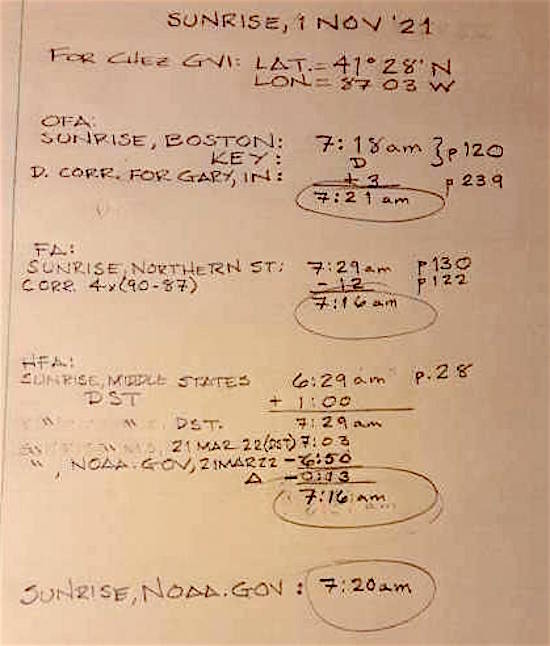 SUNRISE, 1 NOV '21
FOR CHEZ GVI: LAT. = 41° 28' N
LON = 87 03 W
OFA:
SUNRISE, BOSTON: 7:18 am } p 120
KEY: D
D. CORR. FOR GARY, IN: + 3 p 239
7:21 am
FA:
SUNRISE, NORTHERN ST: 7:29 am p 130
CORR. 4x(90-87) - 12 p 122
7:16 am
HFA:
SUNRISE, MIDDLE STATES 6:29 am p. 28
DST + 1:00
" " DST. 7:29 am
" 21 MAR 22 (DST) 7:03
" , NOAA.GOV, 21 MAR 22 - 6:50
Δ - 0:13
7:16 am
SUNRISE, NOAA.GOV : 7:20 am